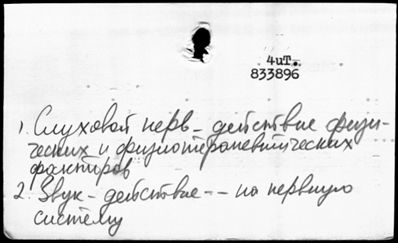 4иТ.
833896
1. Слуховой нерв - действие физи-
ческих и физиотерапевтических
факторов
2. Звук - действие -- на нервную
систему